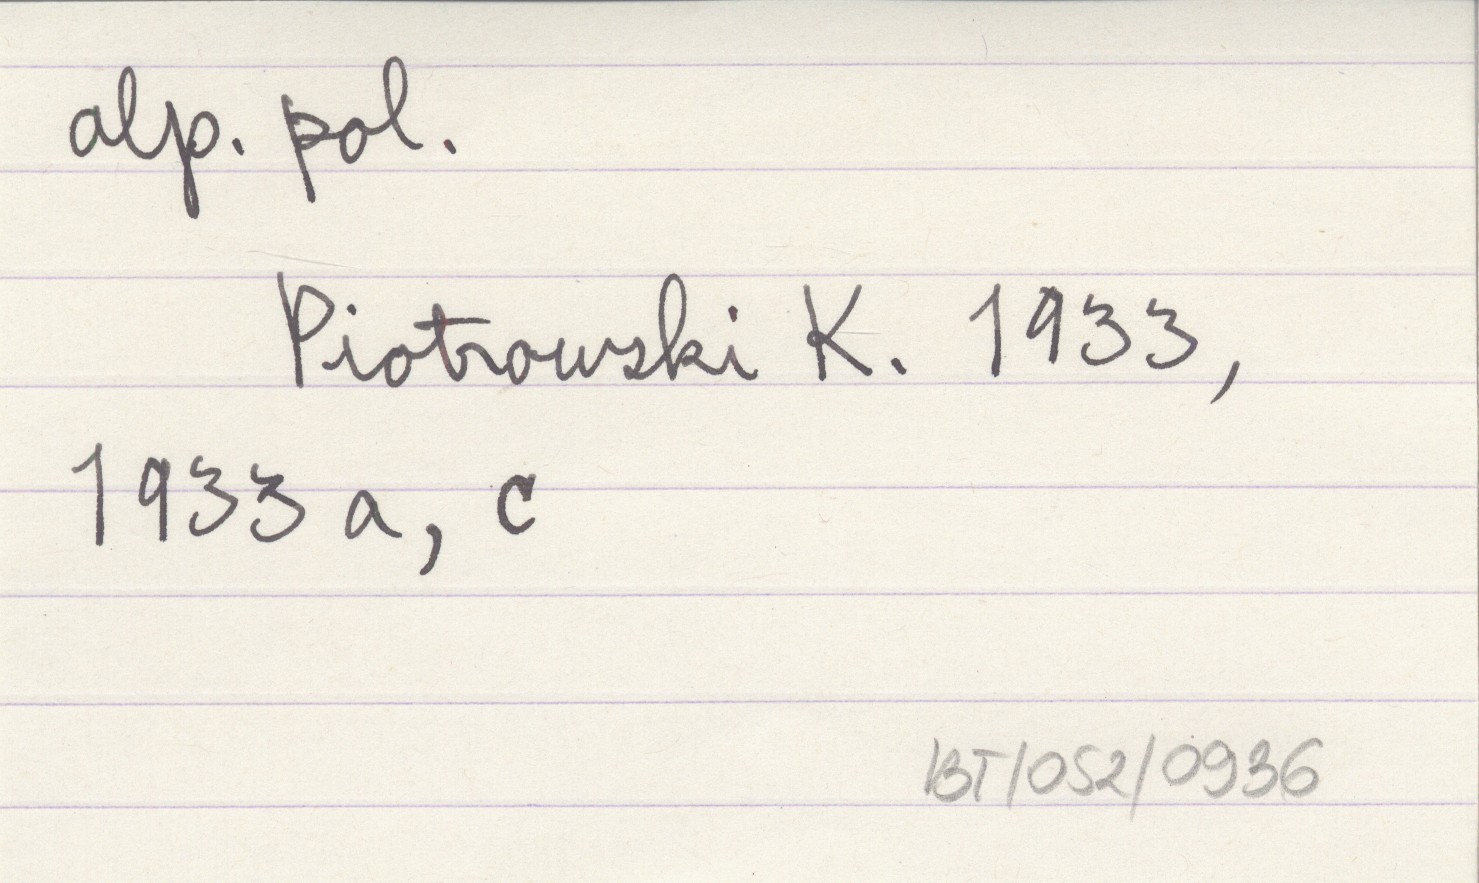 alp. pol.
Piotrowski K. 1933,
1933 a, c
BT/052/0936